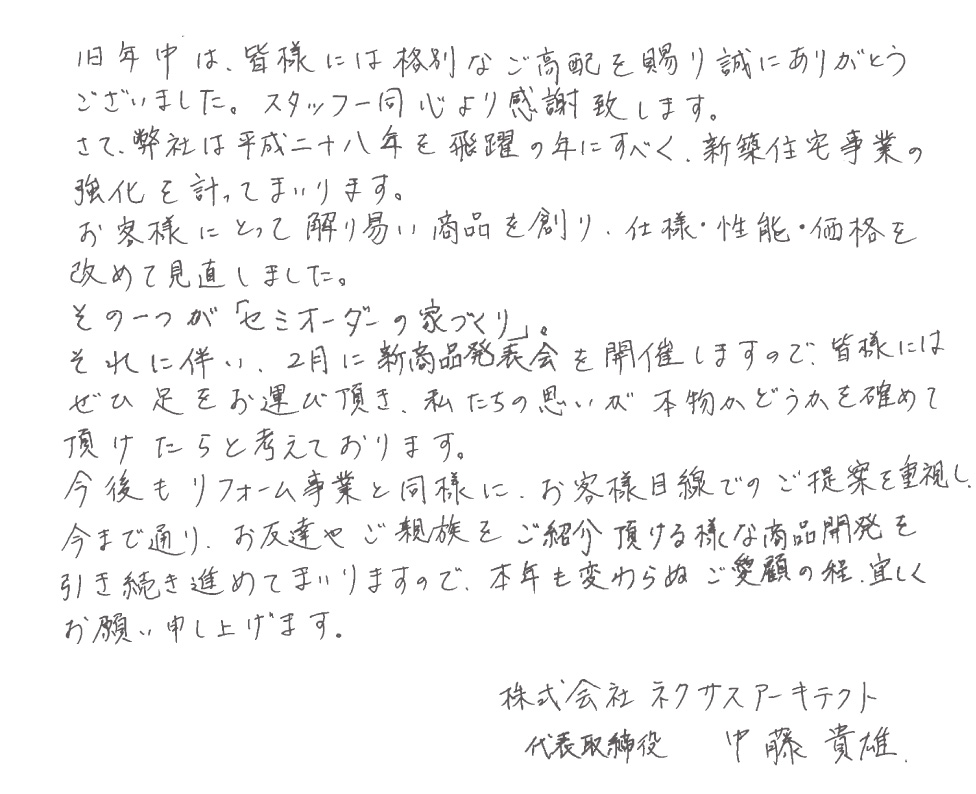 旧年中は、皆様には格別なご高配を賜り誠にありがとう
ございました。スタッフ一同心より感謝致します。
さて、弊社は平成二十八年を飛躍の年にすべく、新築住宅事業の
強化を計ってまいります。
お客様にとって解り易い商品を創り、仕様・性能・価格を
改めて見直しました。
その一つが「セミオーダーの家づくり」。
それに伴い、2月に新商品発表会を開催しますので、皆様には
ぜひ足をお運び頂き、私たちの思いが本物かどうかを確めて
頂けたらと考えております。
今後もリフォーム事業と同様に、お客様目線でのご提案を重視し、
今まで通り、お友達やご親族をご紹介頂ける様な商品開発を
引き続き進めてまいりますので、本年も変わらぬご愛顧の程、宜しく
お願い申し上げます。
株式会社ネクサスアーキテクト
代表取締役 中藤貴雄.